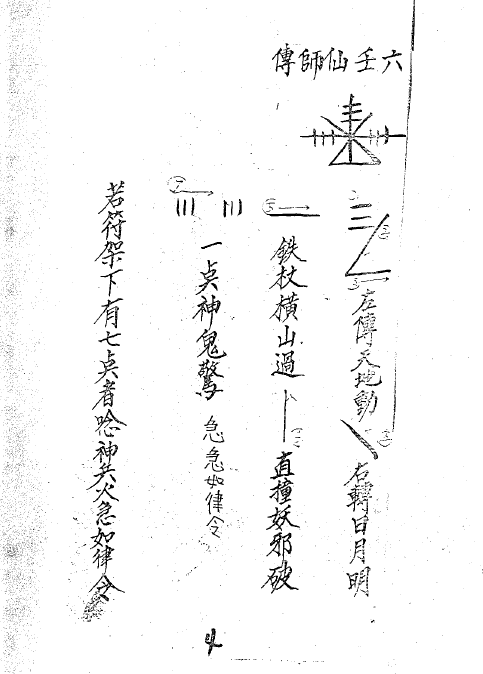 六壬仙師傳
左傳天地動 右轉日月明
鉄杖橫山過 直撞妖邪破
一点神鬼驚 急急如律令
若符架下有七点者唸神共火急如律令
4